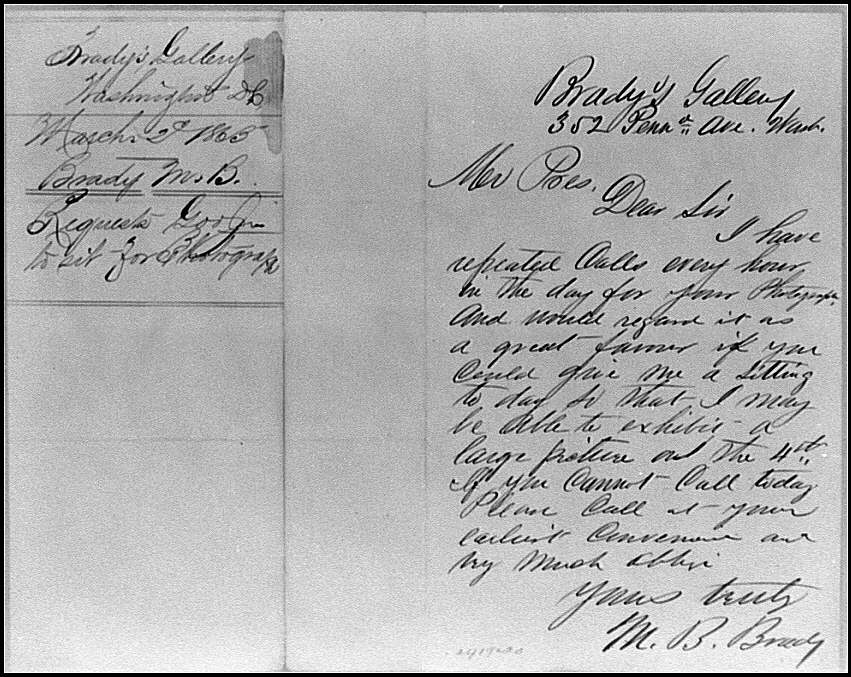 Brady's Gallery
Washington DC
March 2d 1865
Brady M. B.
Requests
to sit for Photograph
Brady's Gallery
352 Penna Ave. Wash.
Mr Pres.
Dear Sir
I have
repeated Calls every hour
in the day for your Photograph
and would regard it as
a great favour if you
Could give me a sitting
to day so that I may
be able to exhibit a
large picture on the 4th.
If you Cannot Call today
Please Call at your
earliest Convenience and
very Much oblige
Yours truly
M. B. Brady